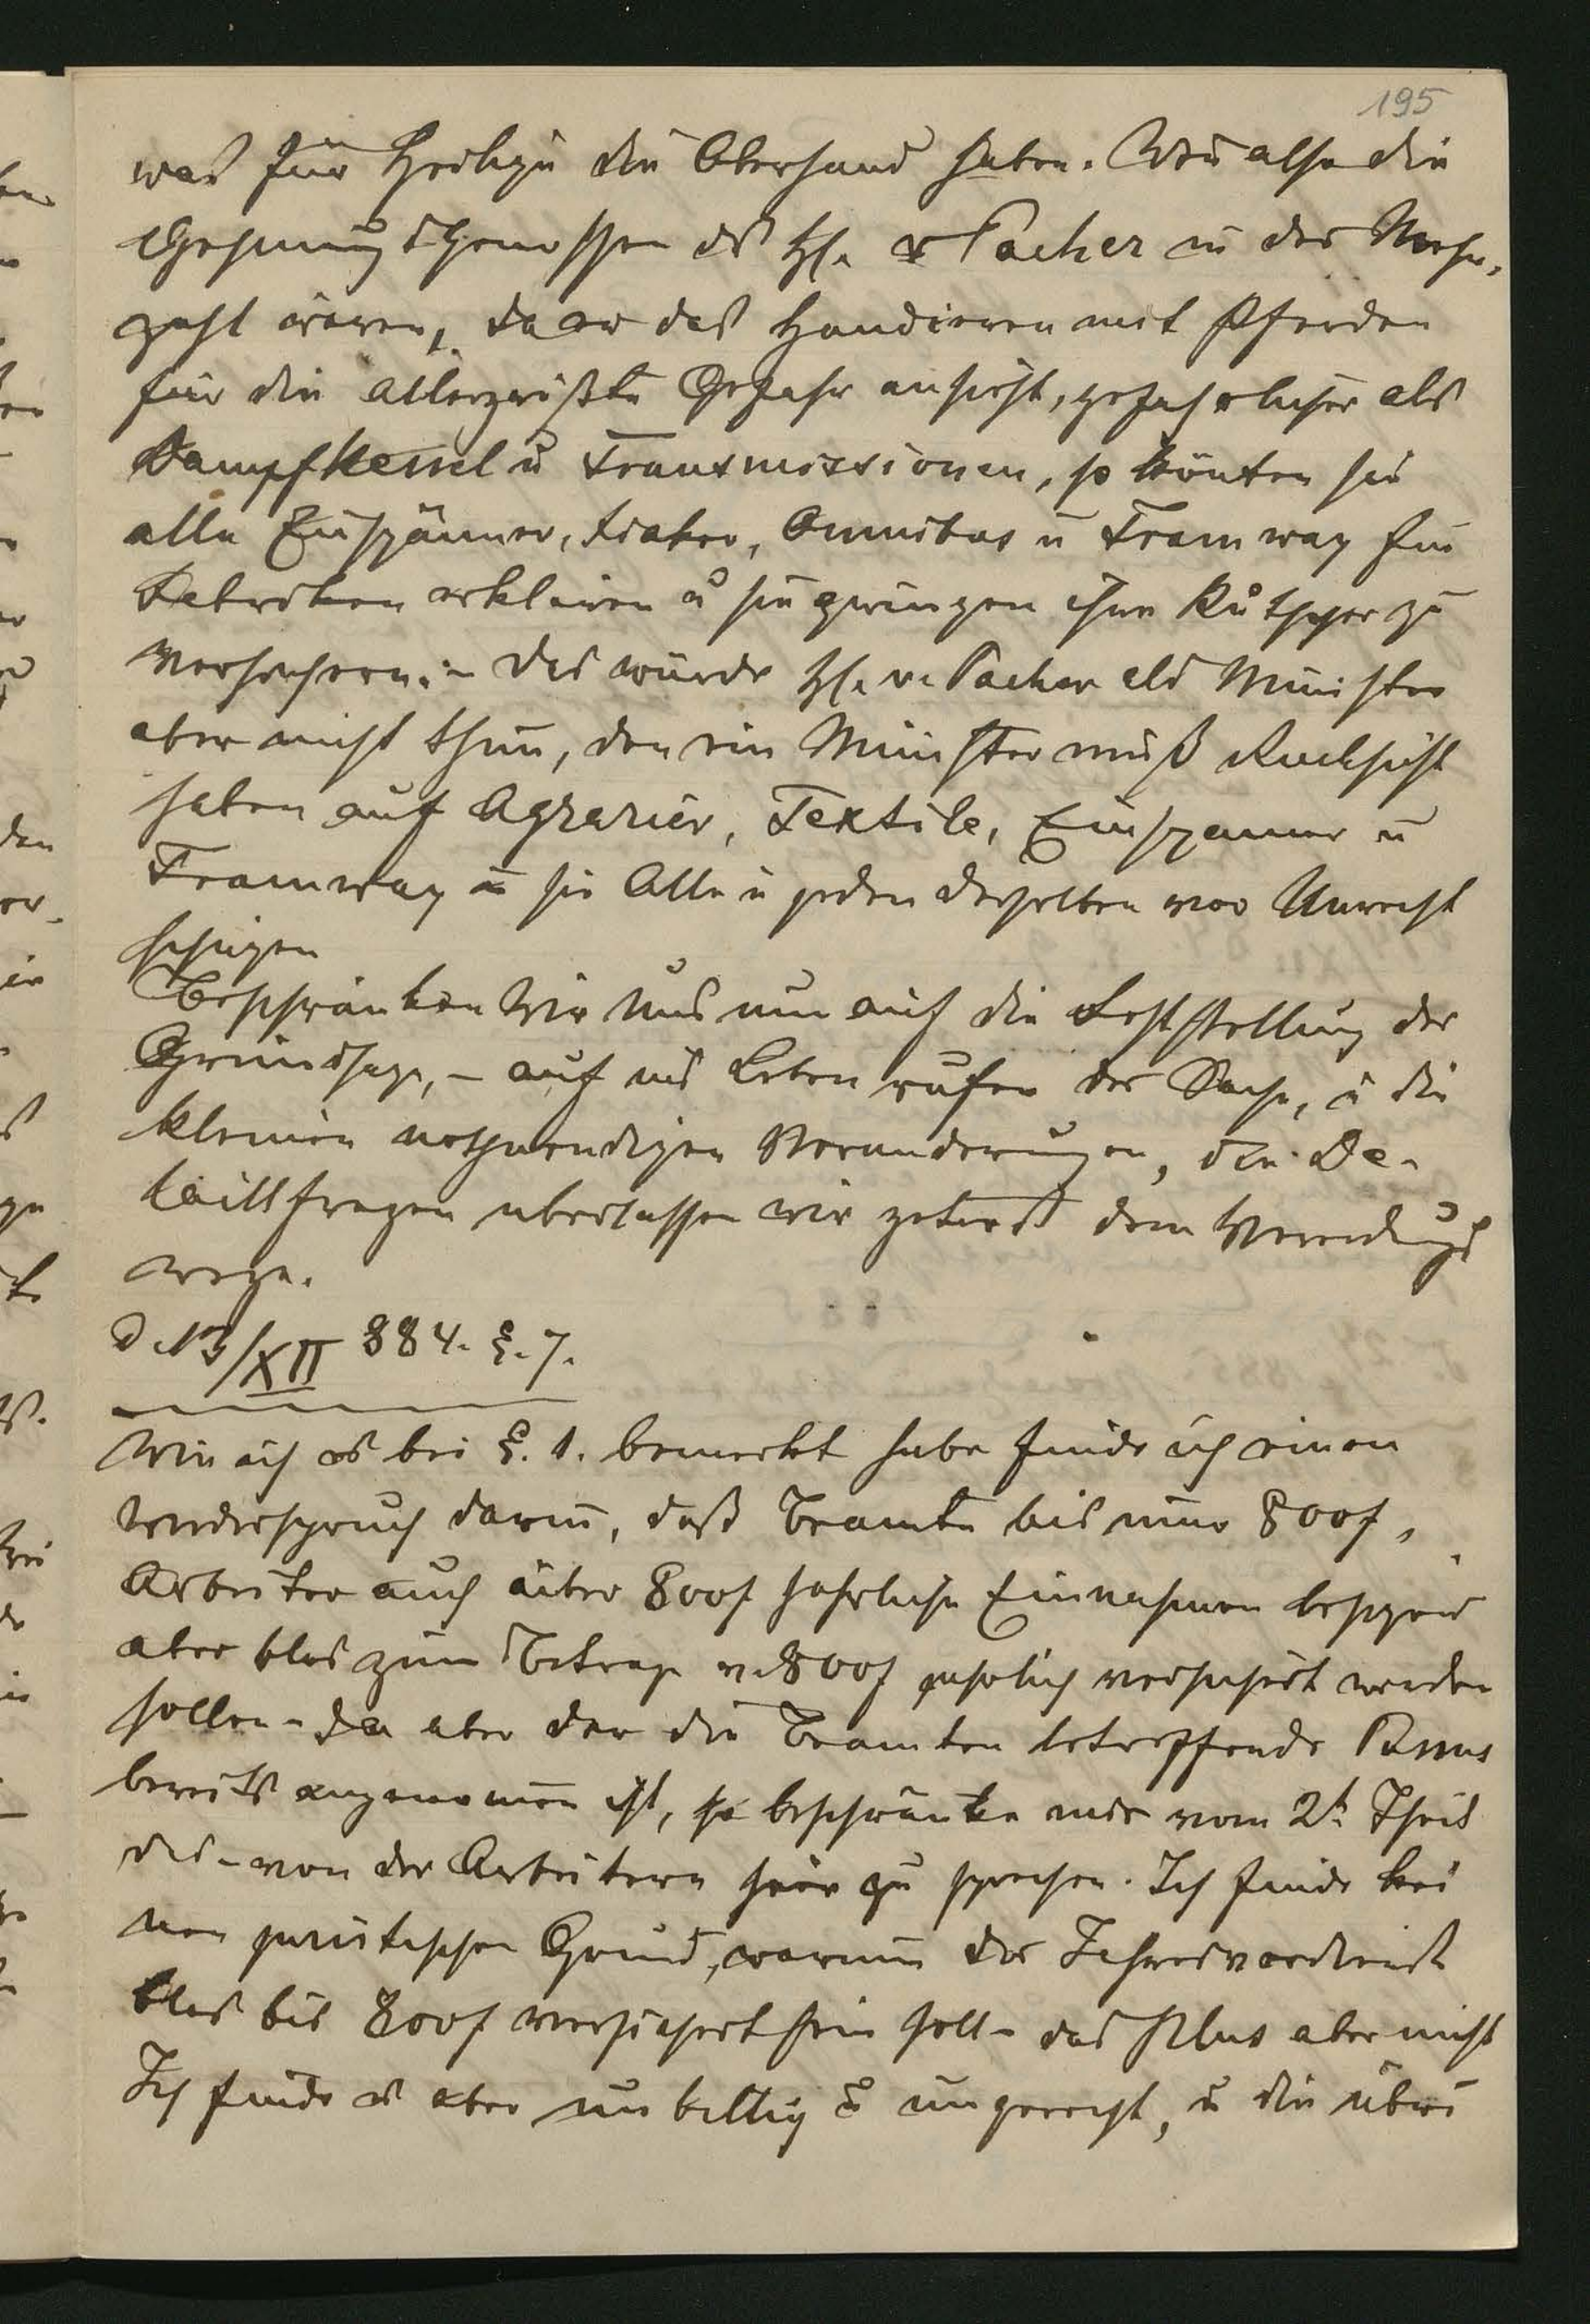 195
was für Heilige die Oberhand haben. Wen also die
Gesinungsgenossen des H. v Pacher in der Mehr-
zahl wären, da er das Handieren mit Pferden
für die allergrößte Gefahr ansieht, gefahrlicher als
Dampfkessel u Transmissionen, so könten sie
alle Einspänner, Fiaker, Omnibus u Tramway für
Fabriken erklären u sie zwingen ihre Kutscher zu
versichern. - Das würde H. v. Pacher als Minister
aber nicht thun, den ein Minister muß Rucksicht
haben auf Agrarier, Textile, Einspanner u
Tramway u sie Alle u jeden derselben vor Unrecht
schüzen
Beschränken Wir Uns nun auf die Feststellung der
Grundsaze, - auf ins Leben rufen der Sache, u die
kleinen nothwendigen Veranderungen, die De-
taillfragen uberlassen wir getrost dem Verordnungs
wege.
d 13/XII 884. §. 7.
Wie ich es bei §. 1. bemerkt habe finde ich einen
Wiederspruch darin, daß Beamte bis nur 800f,
Arbeiter auch über 800f jahrliche Einnahmen
aber blos zum Betrage v. 800f jahrlich versichert werden
sollen - da aber der die Beamten betreffende Passus
bereits angenomen ist, so beschränke mich vom 2t Theil
das - von der Arbeitern hier zu sprechen. Ich finde kei
nen juristischen Grund, warum der Jahresverdienst
blos bis 800f versichert sein soll - das Plus aber nicht
Ich finde es aber unbillig u ungerecht, u die übri